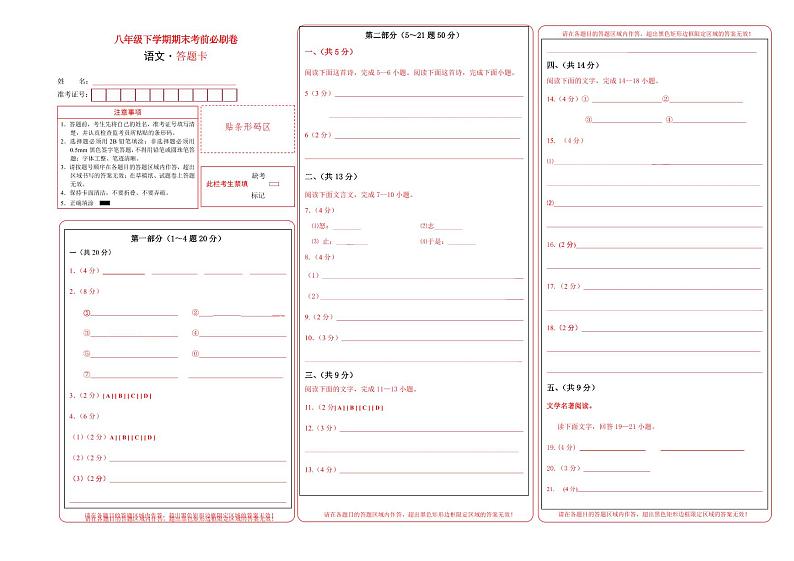 八年级下学期期末考前必刷卷
语文·答题卡
姓 名：
准考证号：
注意事项
1．答题前，考生先将自己的姓名，准考证号填写清
楚，并认真检查监考员所粘贴的条形码。
2．选择题必须用 2B 铅笔填涂；非选择题必须用
0.5mm 黑色签字笔答题，不得用铅笔或圆珠笔答
题；字体工整、笔迹清晰。
3．请按题号顺序在各题目的答题区域内作答，超出
区域书写的答案无效；在草稿纸、试题卷上答题
无效。
4．保持卡面清洁，不要折叠、不要弄破。
5．正确填涂
贴条形码区
此栏考生禁填
缺考
标记
第一部分（1～4 题 20 分）
一（共 20 分）
1.（4 分）
2.（8 分）
① ②
③ ④
⑤ ⑥
⑦
3.（2 分）[ A ] [ B ] [ C ] [ D ]
4.（6 分）
（1）（2 分）A ] [ B ] [ C ] [ D ]
（2）（2 分）
（3）（2 分）
请在各题目的答题区域内作答，超出黑色矩形边框限定区域的答案无效！
请在各题目的答题区域内作答，超出黑色矩形边框限定区域的答案无效！
第二部分（5～21 题 50 分）
一、（共 5 分）
阅读下面这首诗，完成 5－6 小题。阅读下面这首诗，完成下面小题。
5（3 分）
6（2 分）
二、（共 13 分）
阅读下面文言文，完成 7－10 小题。
7.（4 分）
⑴恕： ⑵志
⑶ 止： ⑷于是：
8.（4 分）
（1）
（2）
9.（2 分）
10.（3 分）
三、（共 9 分）
阅读下面的文字，完成 11－13 小题。
11.（2 分[ A ] [ B ] [ C ] [ D ]
12.（3 分）
13.（4 分）
请在各题目的答题区域内作答，超出黑色矩形边框限定区域的答案无效！
请在各题目的答题区域内作答，超出黑色矩形边框限定区域的答案无效！
四、（共 14 分）
阅读下面的文字，完成 14－18 小题。
14.（4 分）① ②
③ ④
15. （4 分）
⑴
⑵
16.（2 分）
17.（2 分）
18.（2 分）
五、（共 9 分）
文学名著阅读。
读下面文字，回答 19－21 小题。
19.（4 分）
20.（3 分）
21. （4 分）
请在各题目的答题区域内作答，超出黑色矩形边框限定区域的答案无效！